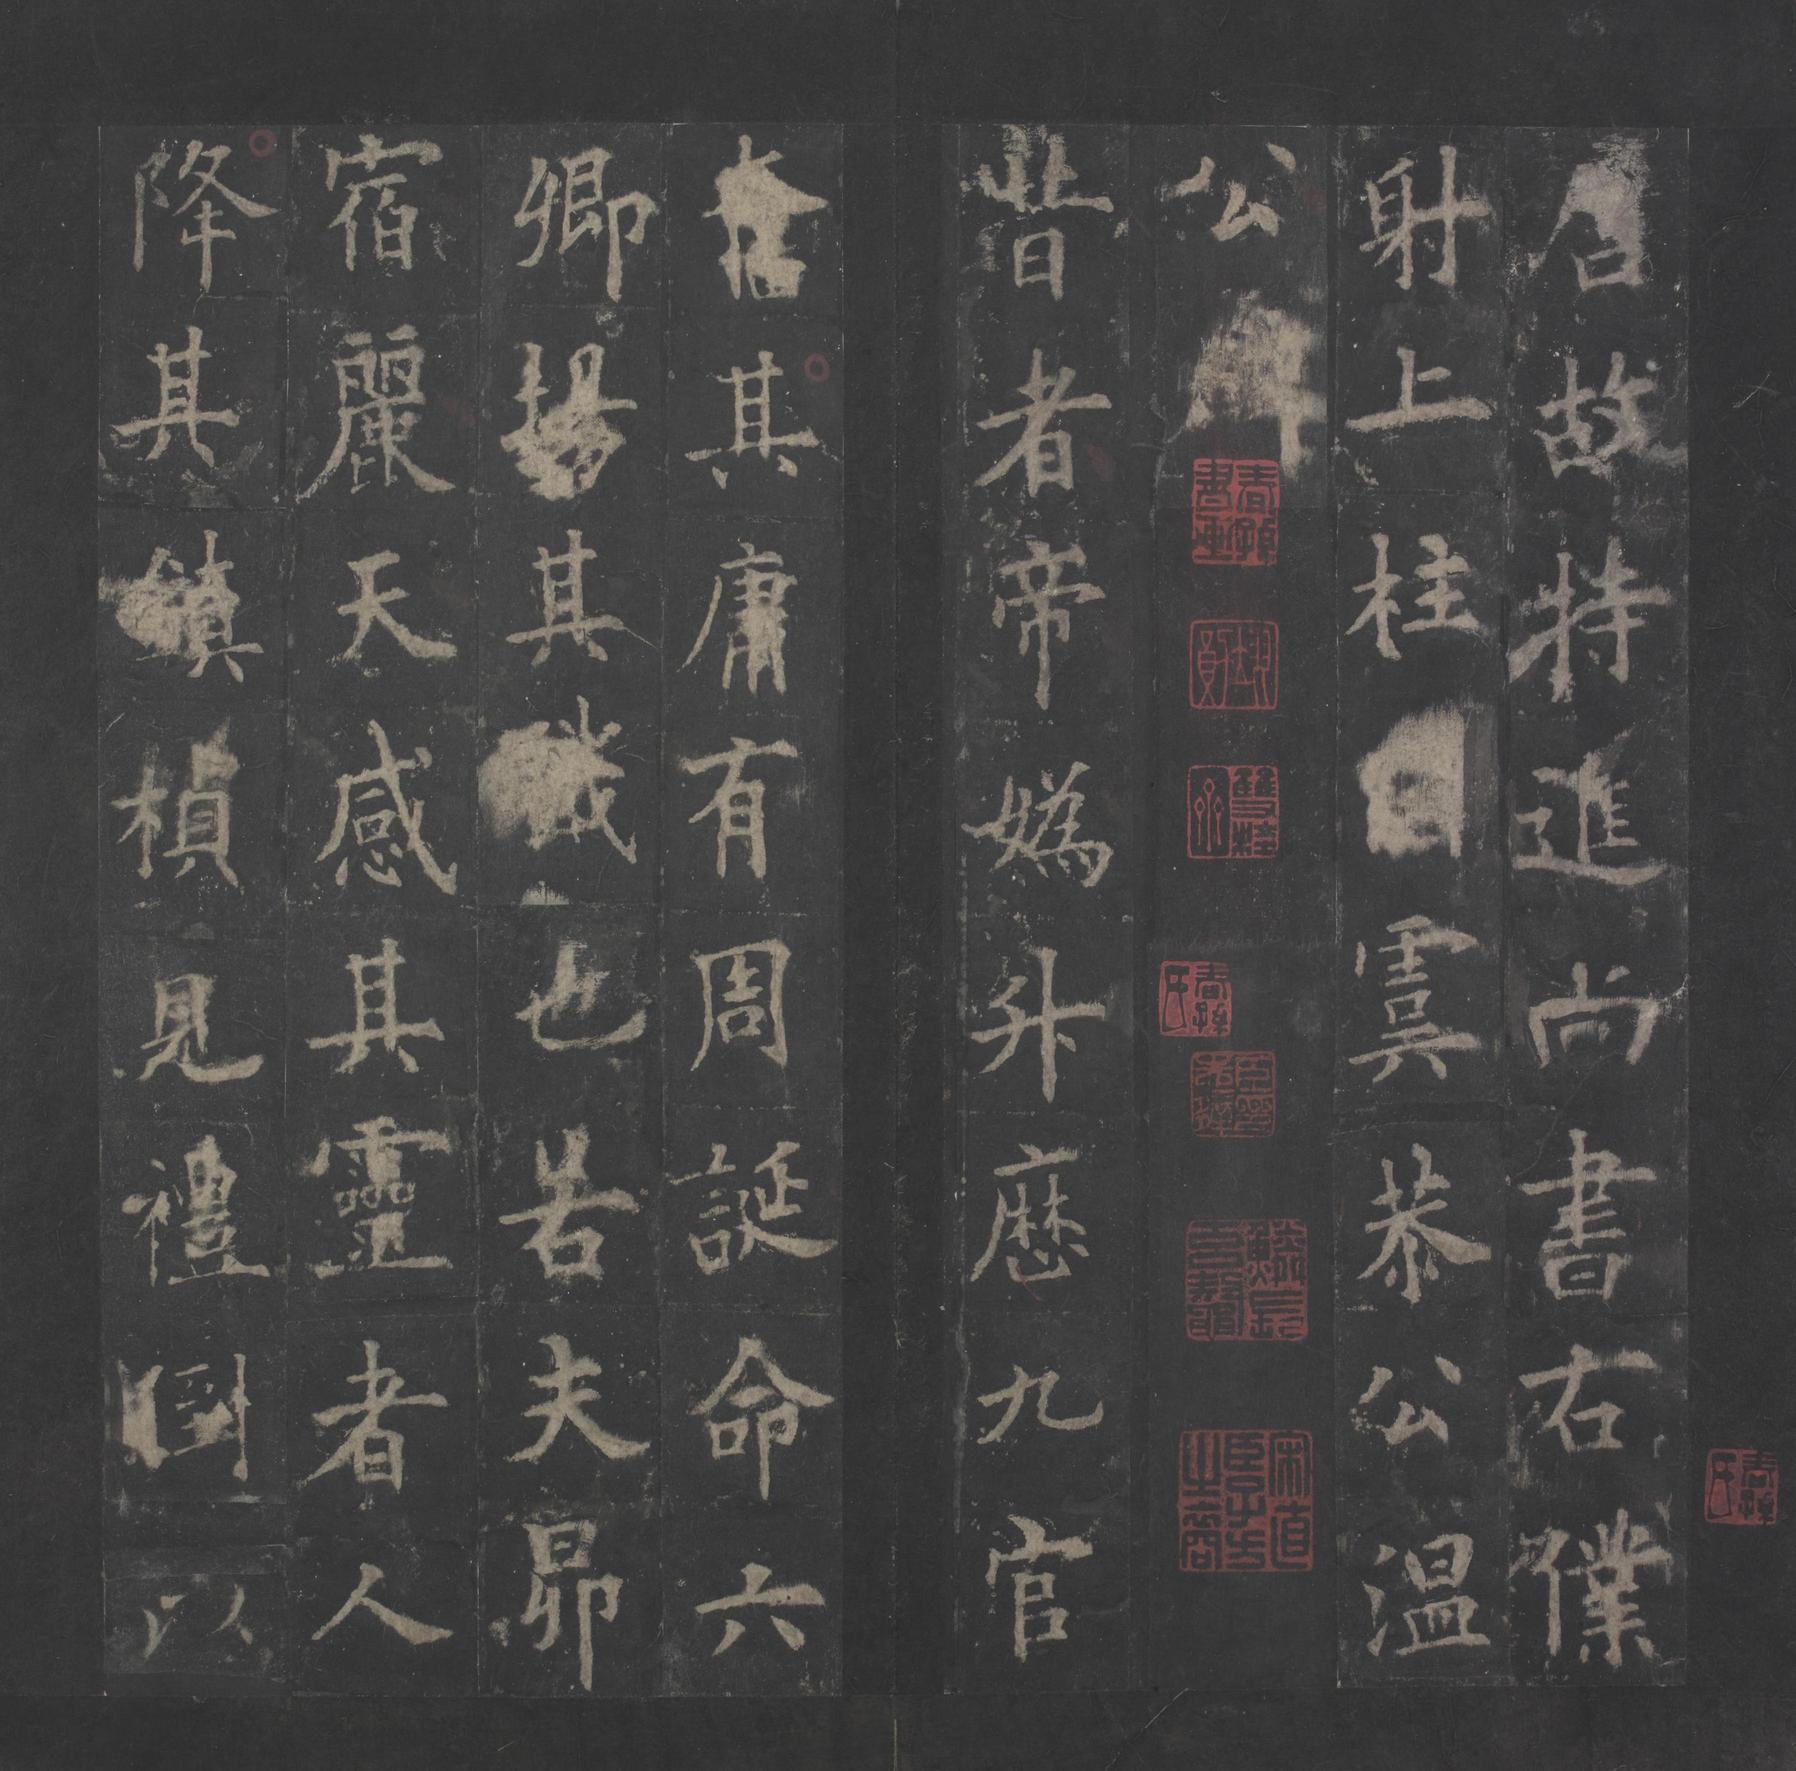 唐故特進尚書右僕
射上柱國虞恭公溫
公碑
昔者帝媯升歷九官
奮其庸有周誕命六
卿揚其職也若夫昴
宿麗天感其靈者人
降其鎮楨見禮國以